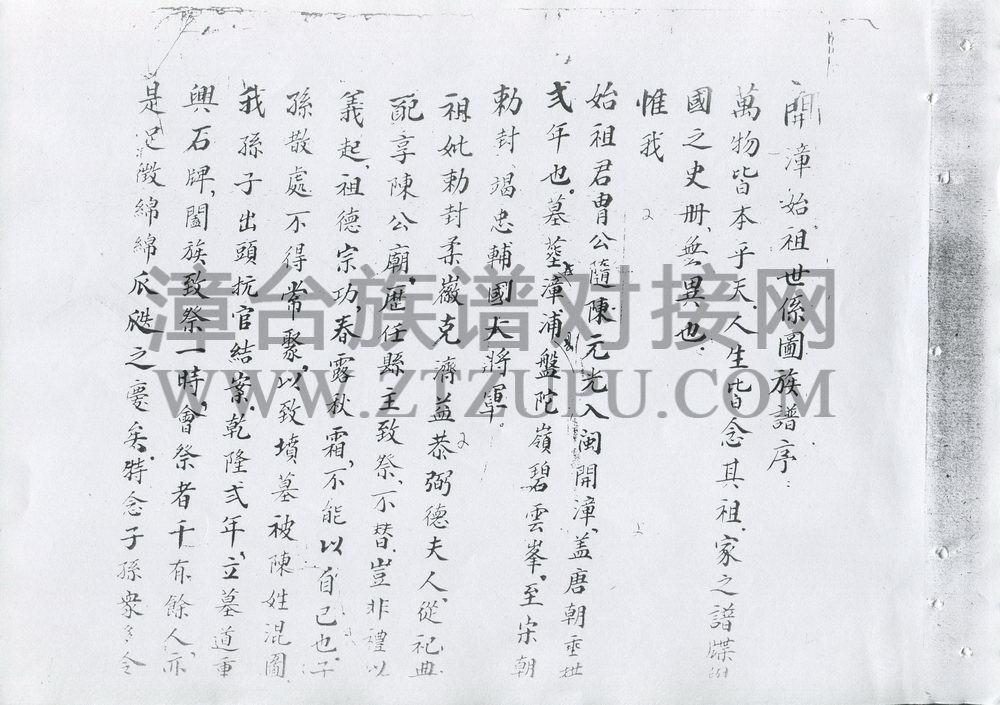 開漳始祖世係圖族譜序：
萬物皆本乎天，人生皆念其祖，家之譜牒
國之史册，無異也：
惟我
始祖君胄公隨陳元光入閩開漳，盖唐朝垂拱
弍年也。墓塟漳浦盤陀嶺碧雲峯。至宋朝
勅封竭忠輔國大將軍。
祖妣勅封柔徽克濟益恭弼德夫人，從祀典
配享陳公廟，歷任縣主致祭，不替，豈非禮以
義起，祖德宗功，春露秋霜，不能以自已也。子
孫散處不得常聚，以致墳墓被陳姓混圖
我孫子出頭抗官結案，乾隆弍年，立墓道重
興石牌，闔族致祭一時，會祭者千有餘人，亦
是足徵綿綿瓜瓞之慶矣。特念子孫衆多今
漳台族谱对接网
WWW.ZTZUPU.COM